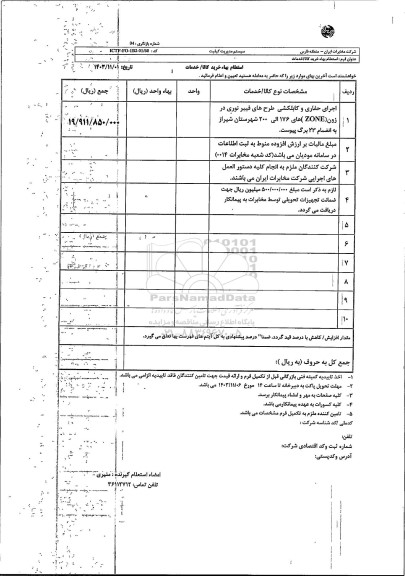 شرکت مخابرات ایران – منطقه فارس
سیستم مدیریت کیفیت
شماره بازنگری: 04
عنوان فرم: استعلام بهاء خرید کالا/خدمات
استعلام بهاء خرید کالا/ خدمات
تاریخ: ۱۴۰۳/۱۱/۰۱
خواهشمند است آخرین بهای موارد زیر را که حاضر به معامله هستید تعیین و اعلام فرمائید.
ردیف
مشخصات نوع کالا/خدمات
واحد
بهاء واحد (ریال)
جمع (ریال)
۱
اجرای حفاری و کابلکشی طرح های فیبر نوری در
زون(ZONE) های ۱۷۶ الی ۲۰۰ شهرستان شیراز
به انضمام ۲۳ برگ پیوست.
۱۹/۹۱۱/۸۵۰/۰۰۰
۲
مبلغ مالیات بر ارزش افزوده منوط به ثبت اطلاعات
در سامانه مودیان می باشد(کد شعبه مخابرات ۰۰۱۴)
۳
شرکت کنندگان ملزم به انجام کلیه دستور العمل
های اجرایی شرکت مخابرات ایران می باشند.
۴
لازم به ذکر است مبلغ ۵۰۰/۰۰۰/۰۰۰ میلیون ریال جهت
ضمانت تجهیزات تحویلی توسط مخابرات به پیمانکار
دریافت می گردد.
۵
۶
۷
۸
۹
۱۰
ParsNamadData
پایگاه اطلاع رسانی مناقصه و مزایده
مقدار افزایش / کاهش با درصد قید گردد. ضمنا" درصد پیشنهادی به کل آیتم های فهرست بها تعلق می گیرد.
جمع کل به حروف (به ریال ):
۱- اخذ تاییدیه کمیته فنی بازرگانی قبل از تکمیل فرم و ارائه قیمت جهت تامین کنندگان فاقد تاییدیه الزامی می باشد.
۲- مهلت تحویل پاکت به دبیرخانه تا ساعت ۱۴ مورخ ۱۴۰۳/۱۱/۰۶ می باشد.
۳- کلیه صفحات به مهر و امضاء پیمانکار برسد.
۴- کلیه کسورات به عهده پیمانکار می باشد.
۵- تامین کننده ملزم به تکمیل فرم مشخصات می باشد.
کدملی /کد شناسه شرکت :
تلفن:
شماره ثبت وکد اقتصادی شرکت:
آدرس وکدپستی:
امضاء استعلام گیرنده :
تلفن تماس: